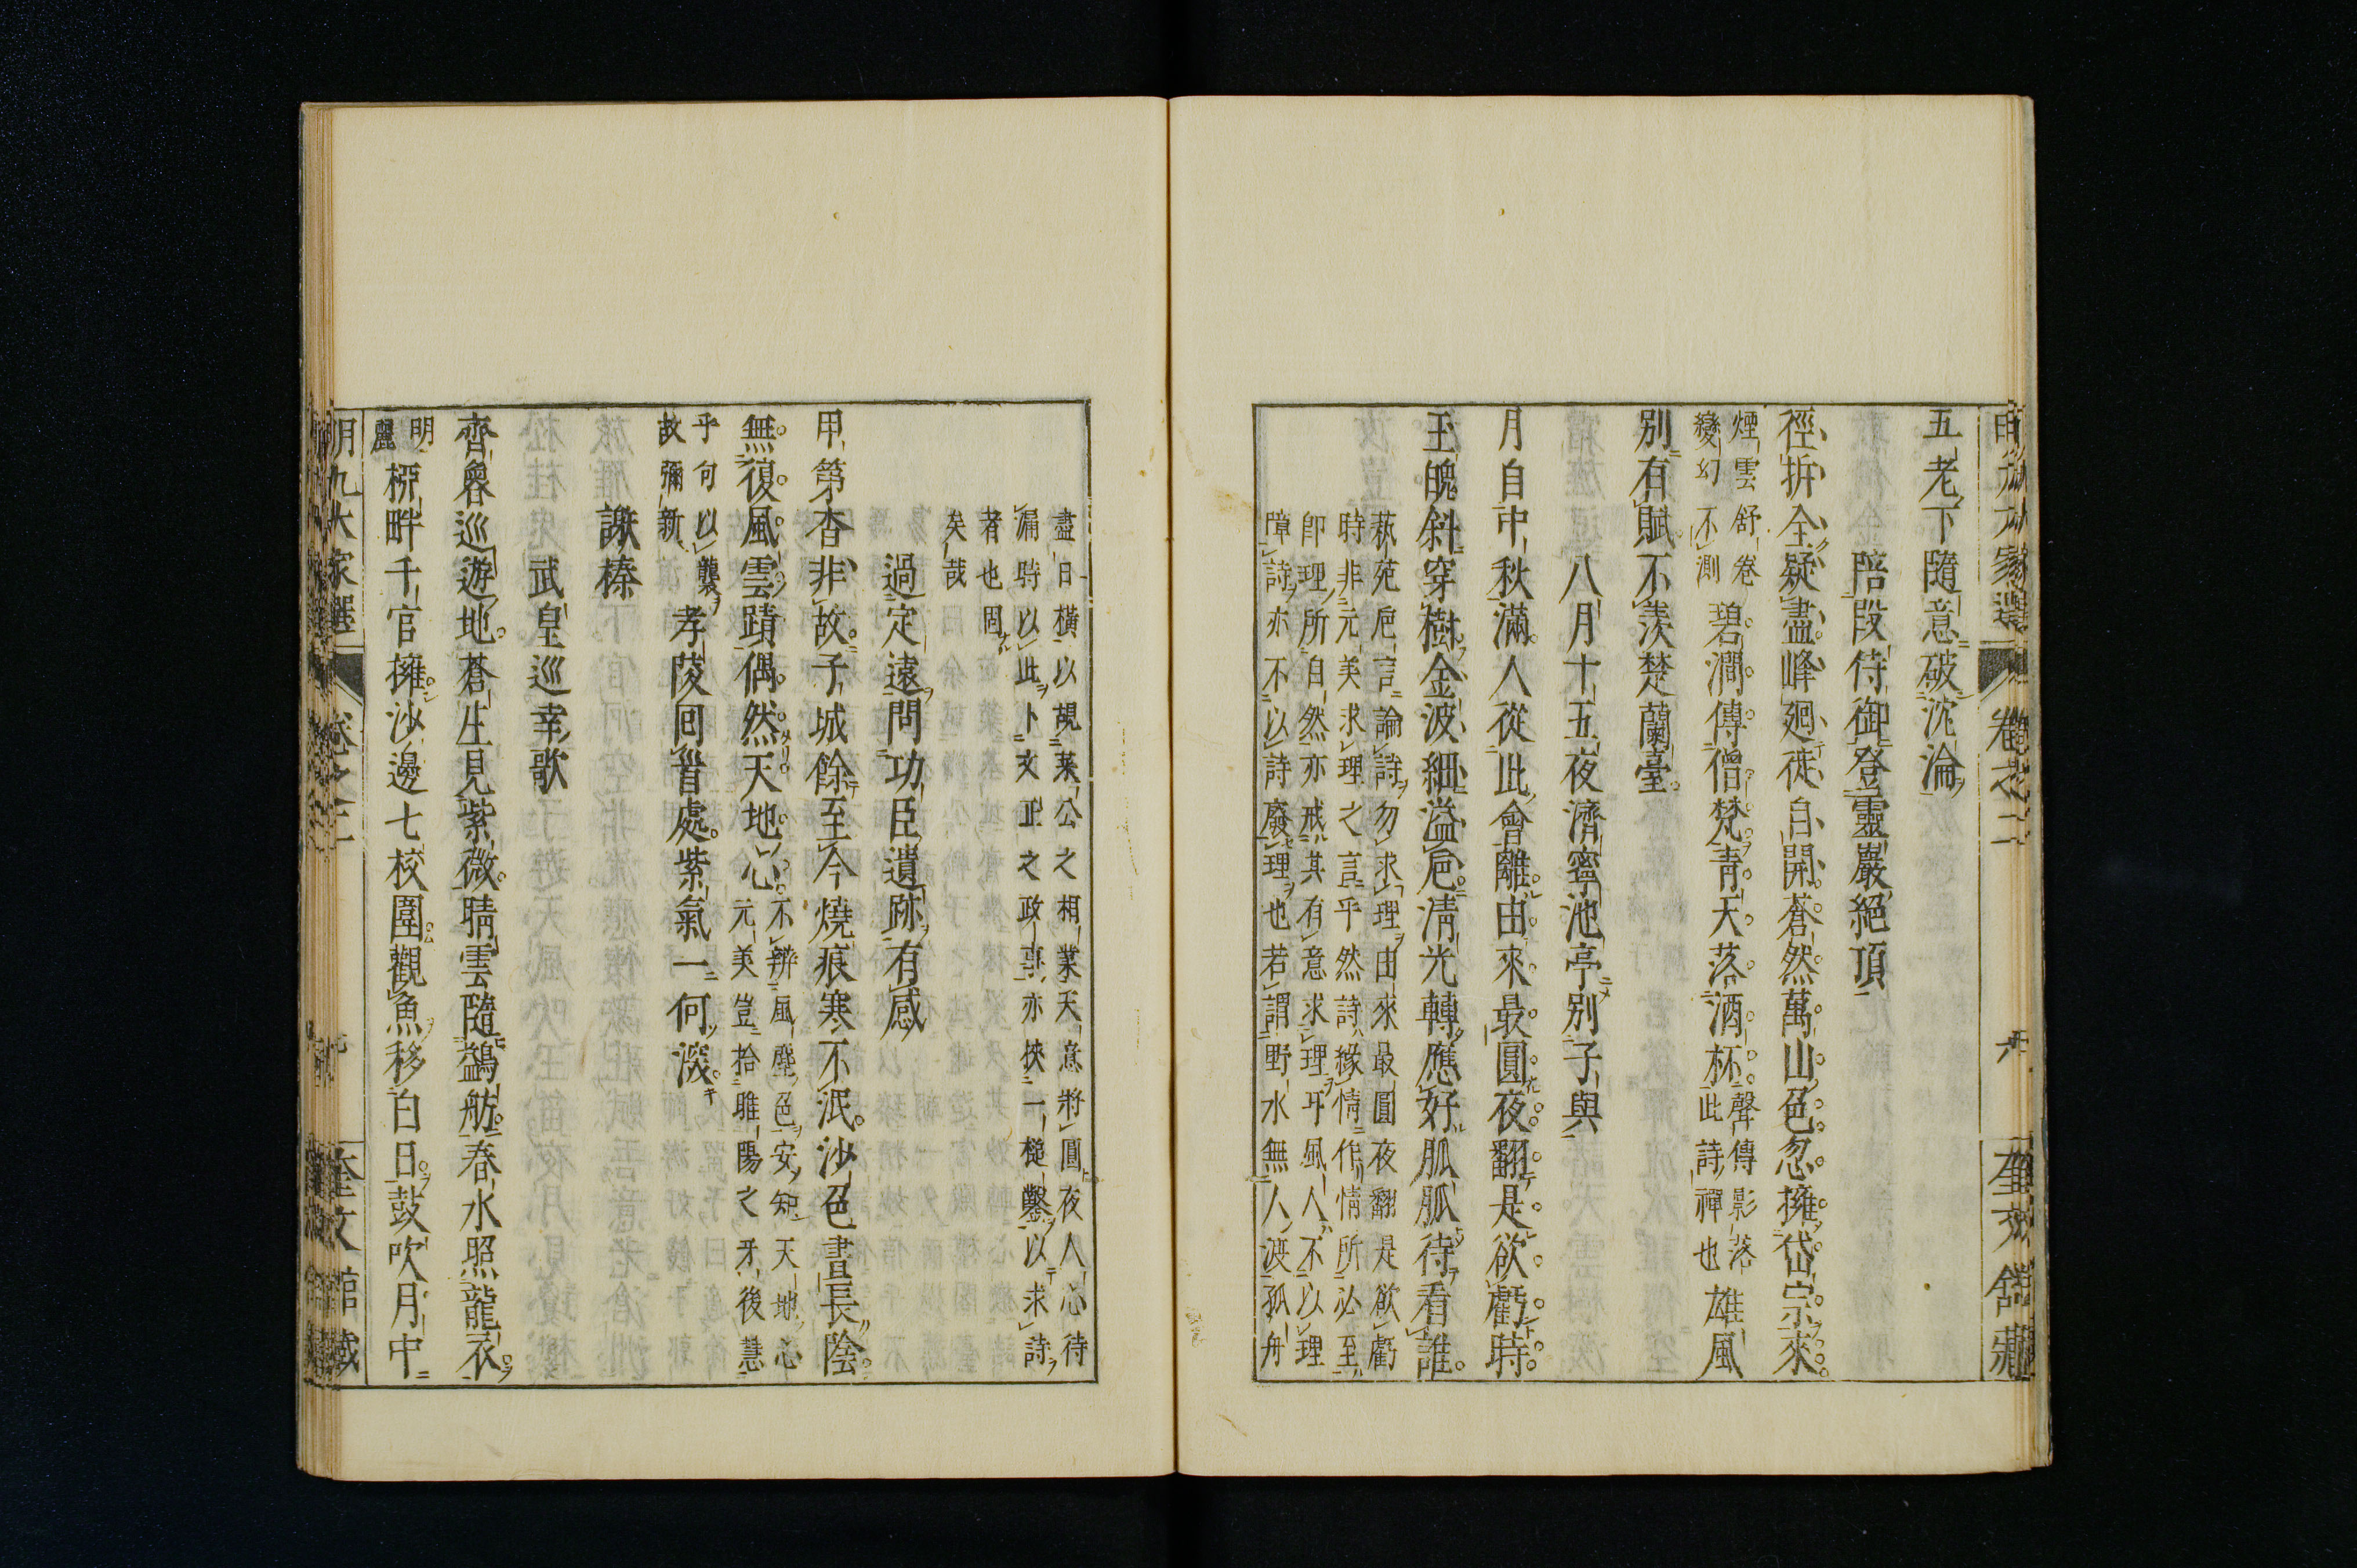 五老下隨意破沈淪
陪段侍御登靈巖絕頂
徑拆全疑盡峰廻徒自開蒼然萬山色忽擁岱宗來
煙雲舒卷
變幻不測
碧澗傳僧梵青天落酒杯
聲傳影落
此詩禪也
雄風
別有賦不羨楚蘭臺
八月十五夜濟寧池亭別子與
月自中秋滿人從此會離由來最圓夜翻是欲虧時
玉魄斜穿樹金波細溢巵清光轉應好脈脈待看誰
藝苑巵言論詩勿求理由來最圓夜翻是欲虧
時非元美求理之言乎然詩緣情作情所必至
即理所自然亦戒其有意求理耳風人不以理
障詩亦不以詩廢理也若謂野水無人渡孤舟
盡日橫以覘萊公之相業天意將圓夜人心待
漏時以此卜文正之政事亦挾一槌鑿以求詩
者也固
矣哉
過定遠問功臣遺跡有感
甲第杳非故子城餘至今燒痕寒不泯沙色晝長陰
無復風雲蹟偶然天地心
不辨風塵色安知天地心
元美豈拾睢陽之牙後慧
乎何以襲
故彌新
孝陵回首處紫氣一何深
謝榛
武皇巡幸歌
齊魯巡遊地蒼生見紫微晴雲隨鷁舫春水照龍衣
明
麗
柳畔千官擁沙邊七校圍觀魚移白日鼓吹月中
明九大家選 卷之二 奎文館藏